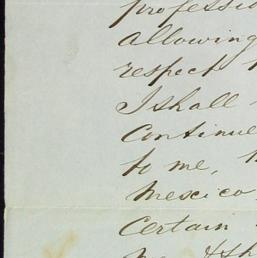 professio
allowing
respect
I shall
Continue
to me,
Mexico
Certain